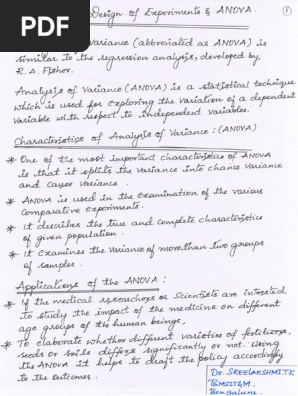 PDF
Design of Experiments & ANOVA.
1
Variance (abbreviated as ANOVA) is
similar to the regression analysis, developed by
R. A. Fisher.
Analysis of Variance (ANOVA) is a statistical technique
which is used for exploring the variation of a dependent
variable with respect to independent variables.
Characteristics of Analysis of Variance : (ANOVA)
* One of the most important characteristics of ANOVA
is that it splits the variance into chance variance
and cause variance.
* ANOVA is used in the examination of the various
comparative experiments.
* It describes the true and complete characteristics
of given population.
* It examines the variance of more than two groups
of samples.
Applications of the ANOVA :
* If the medical researchers or scientists are interested
to study the impact of the medicine on different
age groups of the human beings,
* To elaborate whether different varieties of fertilizers,
seeds or soils differs significantly or not. Using
the ANOVA it helps to draft the policy accordingly
to the outcomes.
Dr. SREELAKSHMI.T.K
BMSIT&M,
Bengaluru.